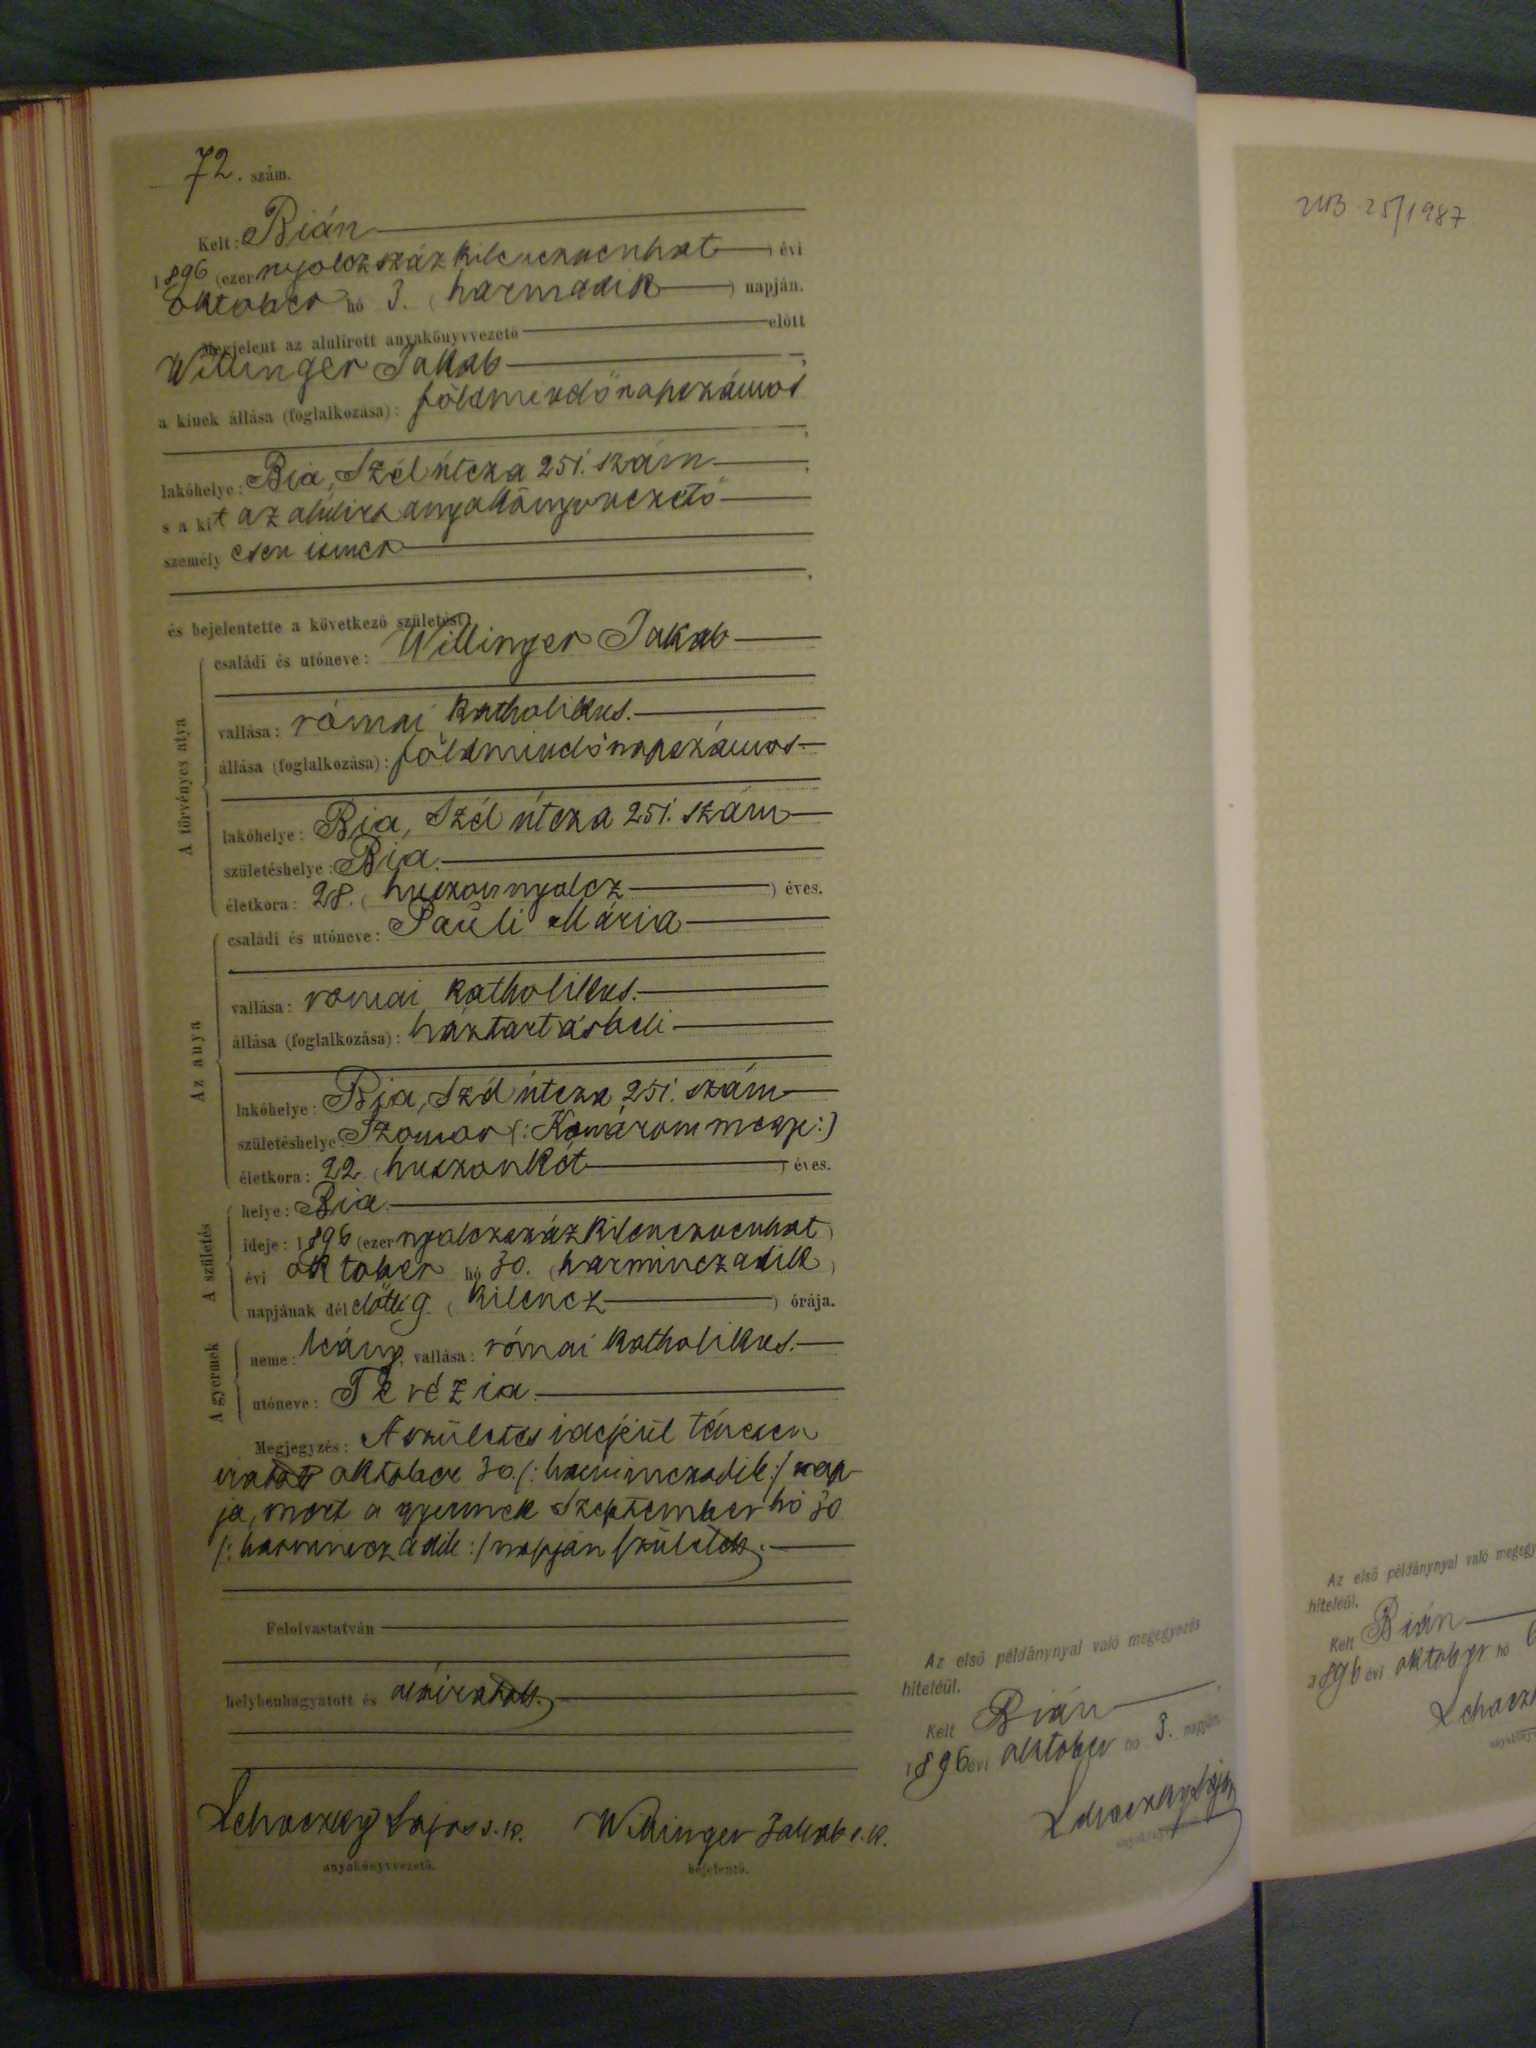 72. szám.
Kelt: Bián
1896 (ezer nyolczszázkilenczvenhat) évi
október hó 3. (harmadik) napján.
Megjelent az alulirott anyakönyvvezető előtt
Willinger Jakab,
a kinek állása (foglalkozása): földmivelő napszámos
lakóhelye: Bia, Szél útcza 251. szám,
s a kit az alulirt anyakönyvvezető
személyesen ismer,
és bejelentette a következő születést:
A törvényes atya
családi és utóneve: Willinger Jakab
vallása: római katholikus.
állása (foglalkozása): földmivelő napszámos
lakóhelye: Bia, Szél útcza 251. szám
születéshelye: Bia.
életkora: 28. (huszonnyolcz) éves.
Az anya
családi és utóneve: Pauli Mária
vallása: romai katholikus.
állása (foglalkozása): háztartásbeli
lakóhelye: Bia, Szél útcza 251. szám
születéshelye: Szomor (: Komárom megye :)
életkora: 22. (huszonkét) éves.
A születés
helye: Bia.
ideje: 1896 (ezer nyolczszázkilenczvenhat)
évi oktober hó 30. (harminczadik)
napjának délelőtti 9 (kilencz) órája.
A gyermek
neme: leány, vallása: római katholikus.
utóneve: Terézia.
Megjegyzés: A születés idejéül tévesen
iratott oktober 30. /: harminczadik :/ nap-
ja, mert a gyermek Szeptember hó 30
/: harminczadik :/ napján született.
Felolvastatván
helybenhagyatott és aláiratott.
Willinger Jakab s. k.
anyakönyvvezető.
bejelentő.
Az első példánynyal való megegyezés
hiteléül.
Kelt Bián
1896 évi oktober hó 3. napján.
25/1987
Az első példánynyal való megegy
hiteléül.
Kelt Bián
1896 évi oktober hó